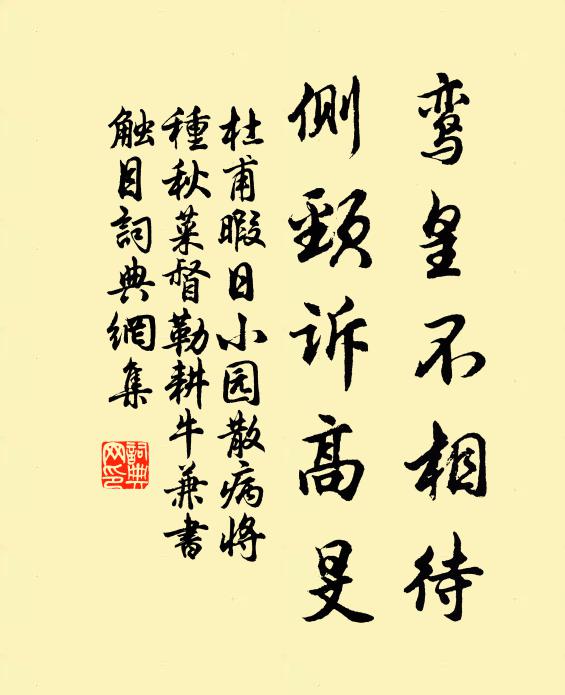 鸾皇不相待
侧颈诉高旻
杜甫暇日小园散病将
種秋菜督勒耕牛兼書
触目詞典網集
詞典
网印